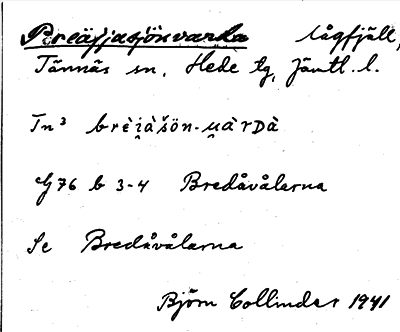 Breäjjasjösvarda lågfjäll,
Tännäs sn, Hede tg, Jämtl. l.
Tn³ brèi̯àšön-u̯àrDà
G 76 b 3-4 Bredåvålarna
Se Bredåvålarna
Björn Collinder 1941